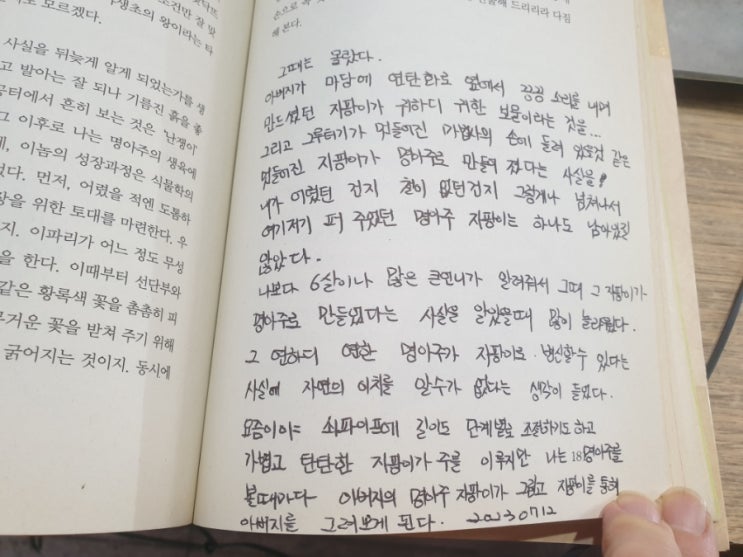 조건만 잘 맞
도 모르겠다.
생초의 왕이라는 타
사실을 뒤늦게 알게 되었는가를 생
고 발아는 잘 되나 기름진 흙을 좋
공터에서 흔히 보는 것은 '난쟁이'
그 이후로 나는 명아주의 생육에
에, 이놈의 성장과정은 식물학의
었다. 먼저, 어렸을 적엔 도톰하
장을 위한 토대를 마련한다. 우
지. 이파리가 어느 정도 무성
을 한다. 이때부터 선단부와
같은 황록색 꽃을 촘촘히 피
무거운 꽃을 받쳐 주기 위해
굵어지는 것이지. 동시에
선물해 드리리라 다짐
해 본다.
그때는 몰랐다.
아버지가 마당에 연탄화로 옆에서 끙끙 소리를 내며
만드셨던 지팡이가 귀하디 귀한 보물이라는 것을...
그리고 그루터기가 멋들어진 마법사의 손에 들려 있을것 같은
멋들어진 지팡이가 명아주로 만들어 졌다는 사실을!
내가 어렸던 건지 철이 없던건지 그렇게나 넘쳐나서
여기저기 퍼 주었던 명아주 지팡이는 하나도 남아있질
않았다.
나보다 6살이나 많은 큰언니가 알려줘서 그때 그 지팡이가
명아주로 만들었다는 사실을 알았을때 많이 놀라웠다.
그 연하디 연한 명아주가 지팡이로 변신할수 있다는
사실에 자연의 이치를 알수가 없다는 생각이 들었다.
요즘이야 쇠파이프에 길이도 단계별로 조절하기도 하고
가볍고 탄탄한 지팡이가 주를 이루지만 나는 명아주를
181
볼때마다 아버지의 명아주 지팡이가 그립고 지팡이를 통해
아버지를 그려보게 된다. 20230712